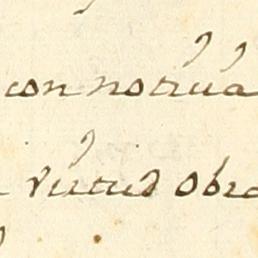 con notiua
virtud obra